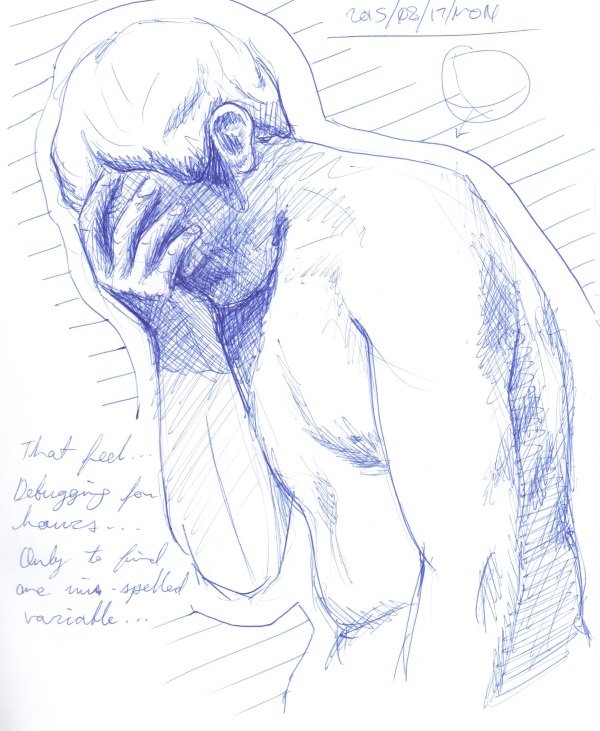 2015/08/17/MON
That feel...
Debugging for
hours...
Only to find
one mis-spelled
variable...